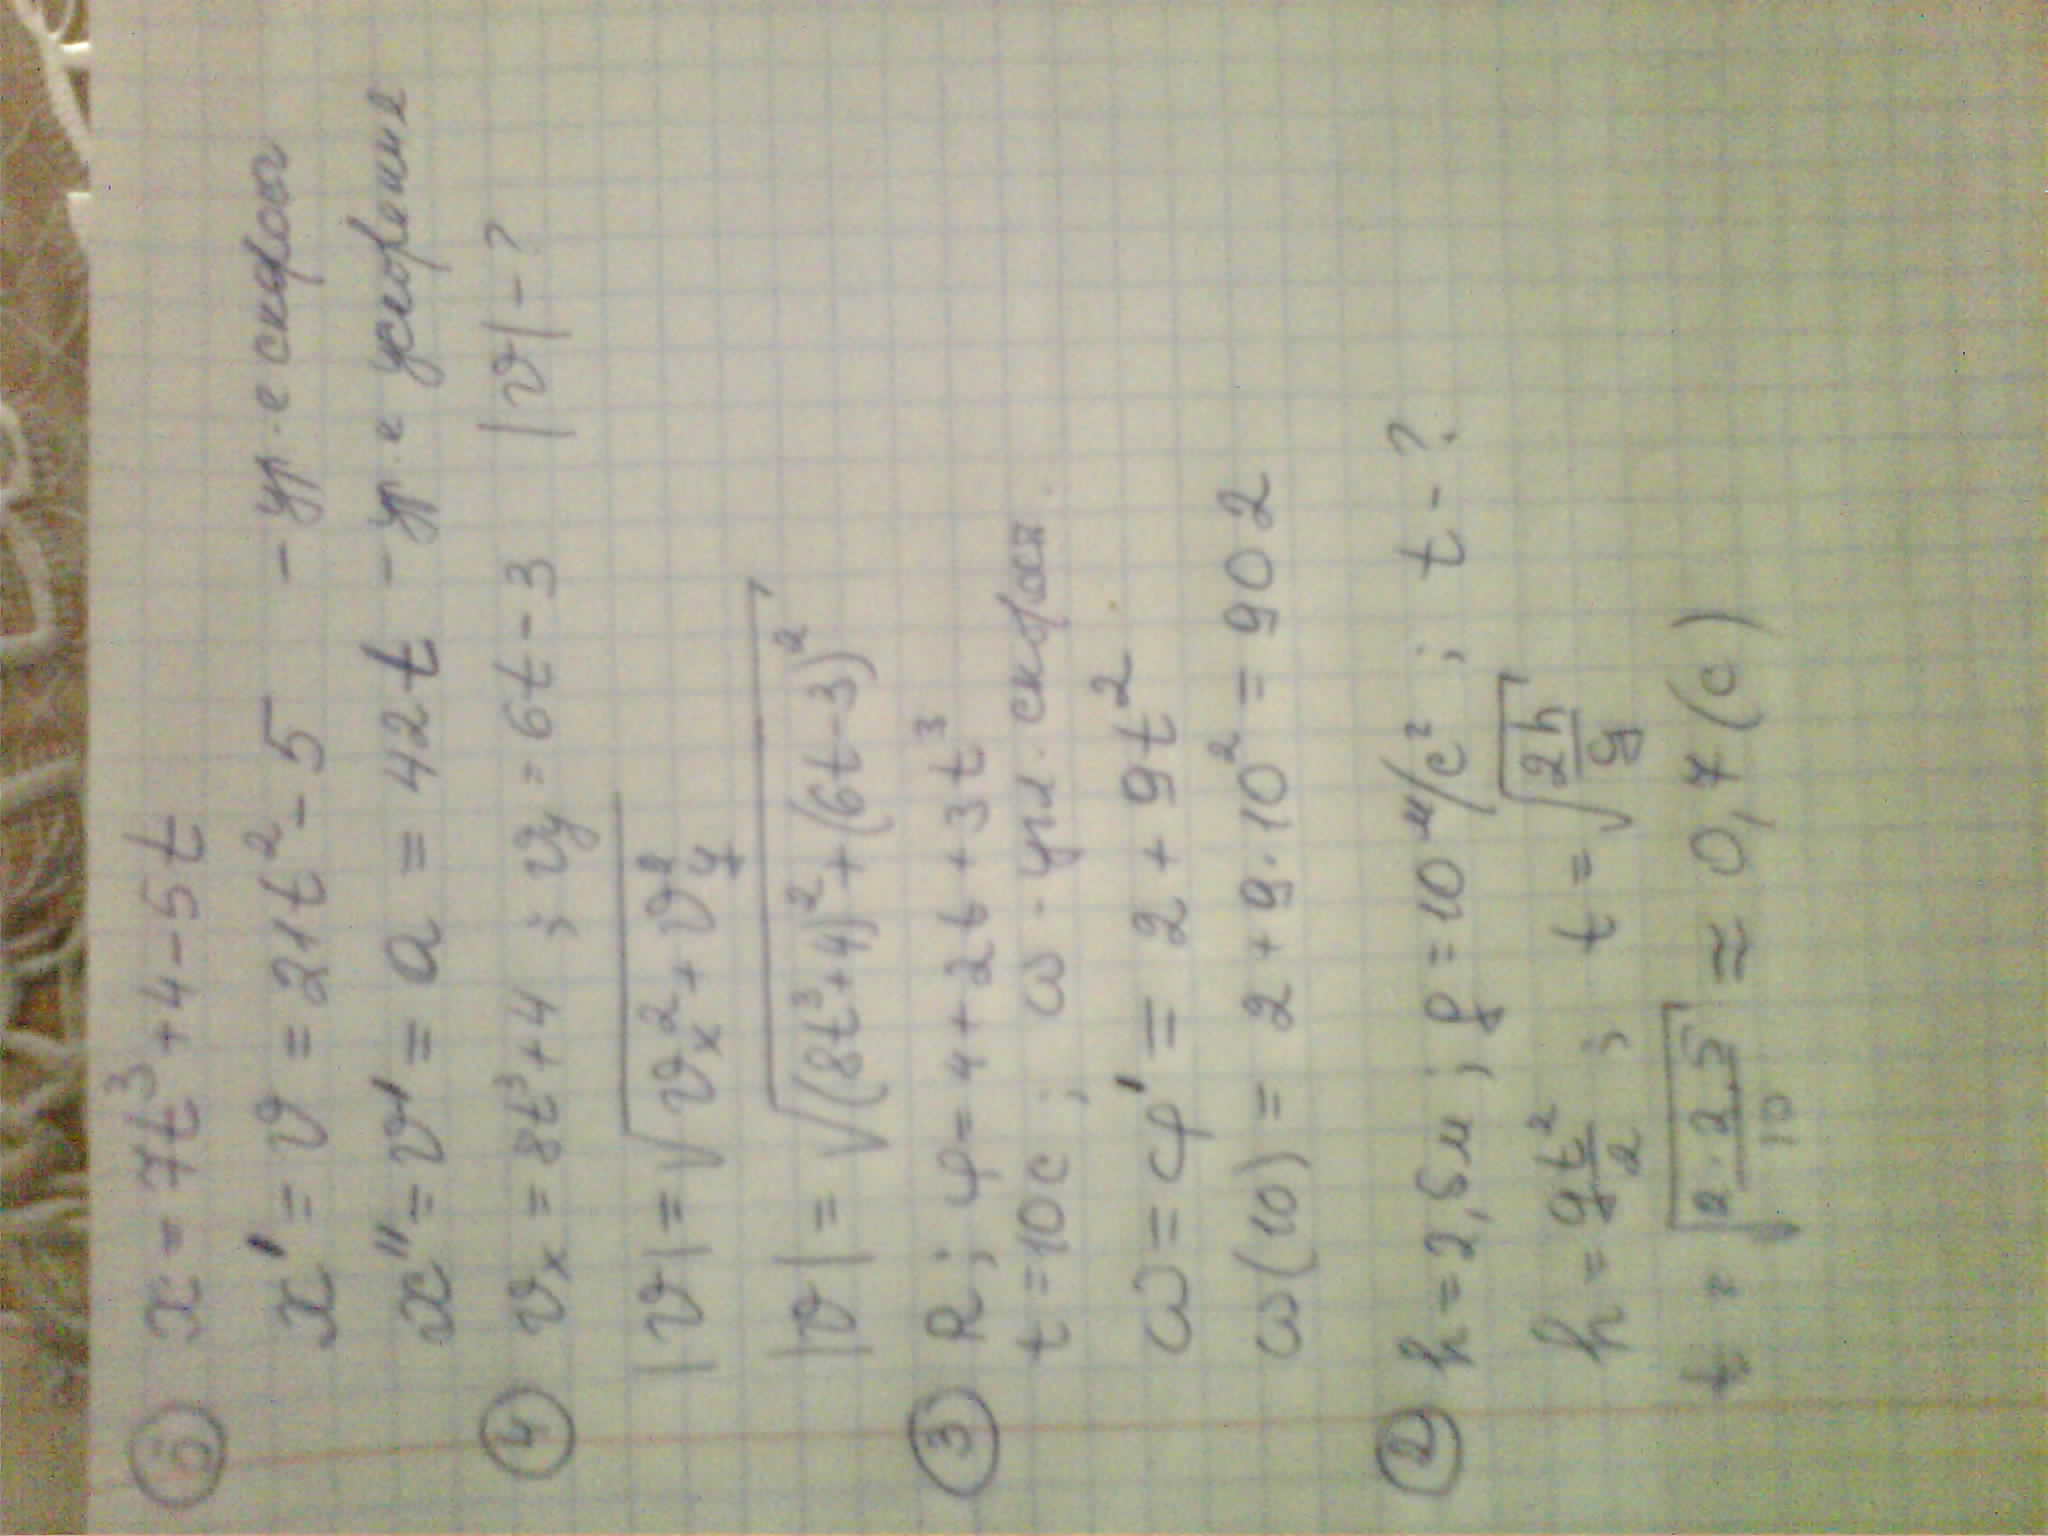 ⑤ x = 7t³ + 4 - 5t
x' = υ = 21t² - 5 - ур-е скорости
x'' = υ' = a = 42t - ур-е ускорение
④ υₓ = 8t³ + 4 ; υy = 6t - 3 |υ| - ?
|υ| = √(υₓ² + υy²)
|υ| = √((8t³+4)² + (6t-3)²)
③ R; φ = 4 + 2t + 3t³
t = 10c ; ω - угл. скорость
ω = φ' = 2 + 9t²
ω(10) = 2 + 9·10² = 902
② h = 2,5м ; g = 10 м/с² ; t - ?
h = gt²/2 ; t = √(2h/g)
t = √(2·2,5/10) ≈ 0,7 (c)